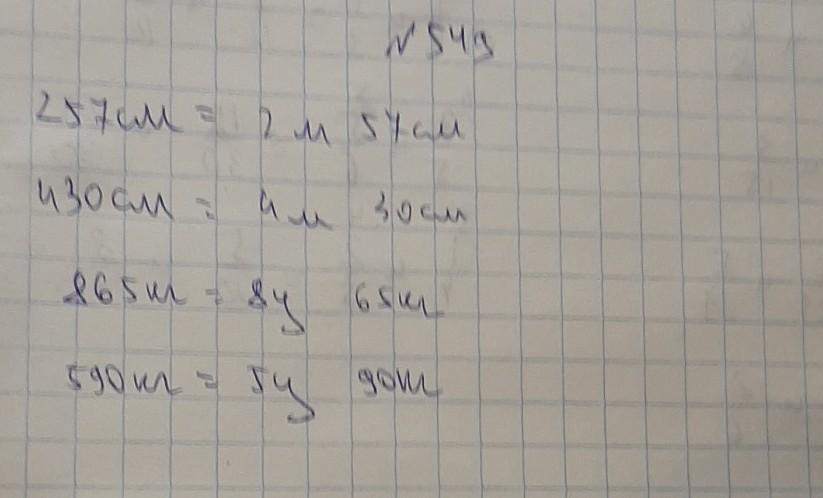 № 549
257 см = 2 м 57 см
430 см = 4 м 30 см
865 кг = 8 ц 65 кг
590 кг = 5 ц 90 кг